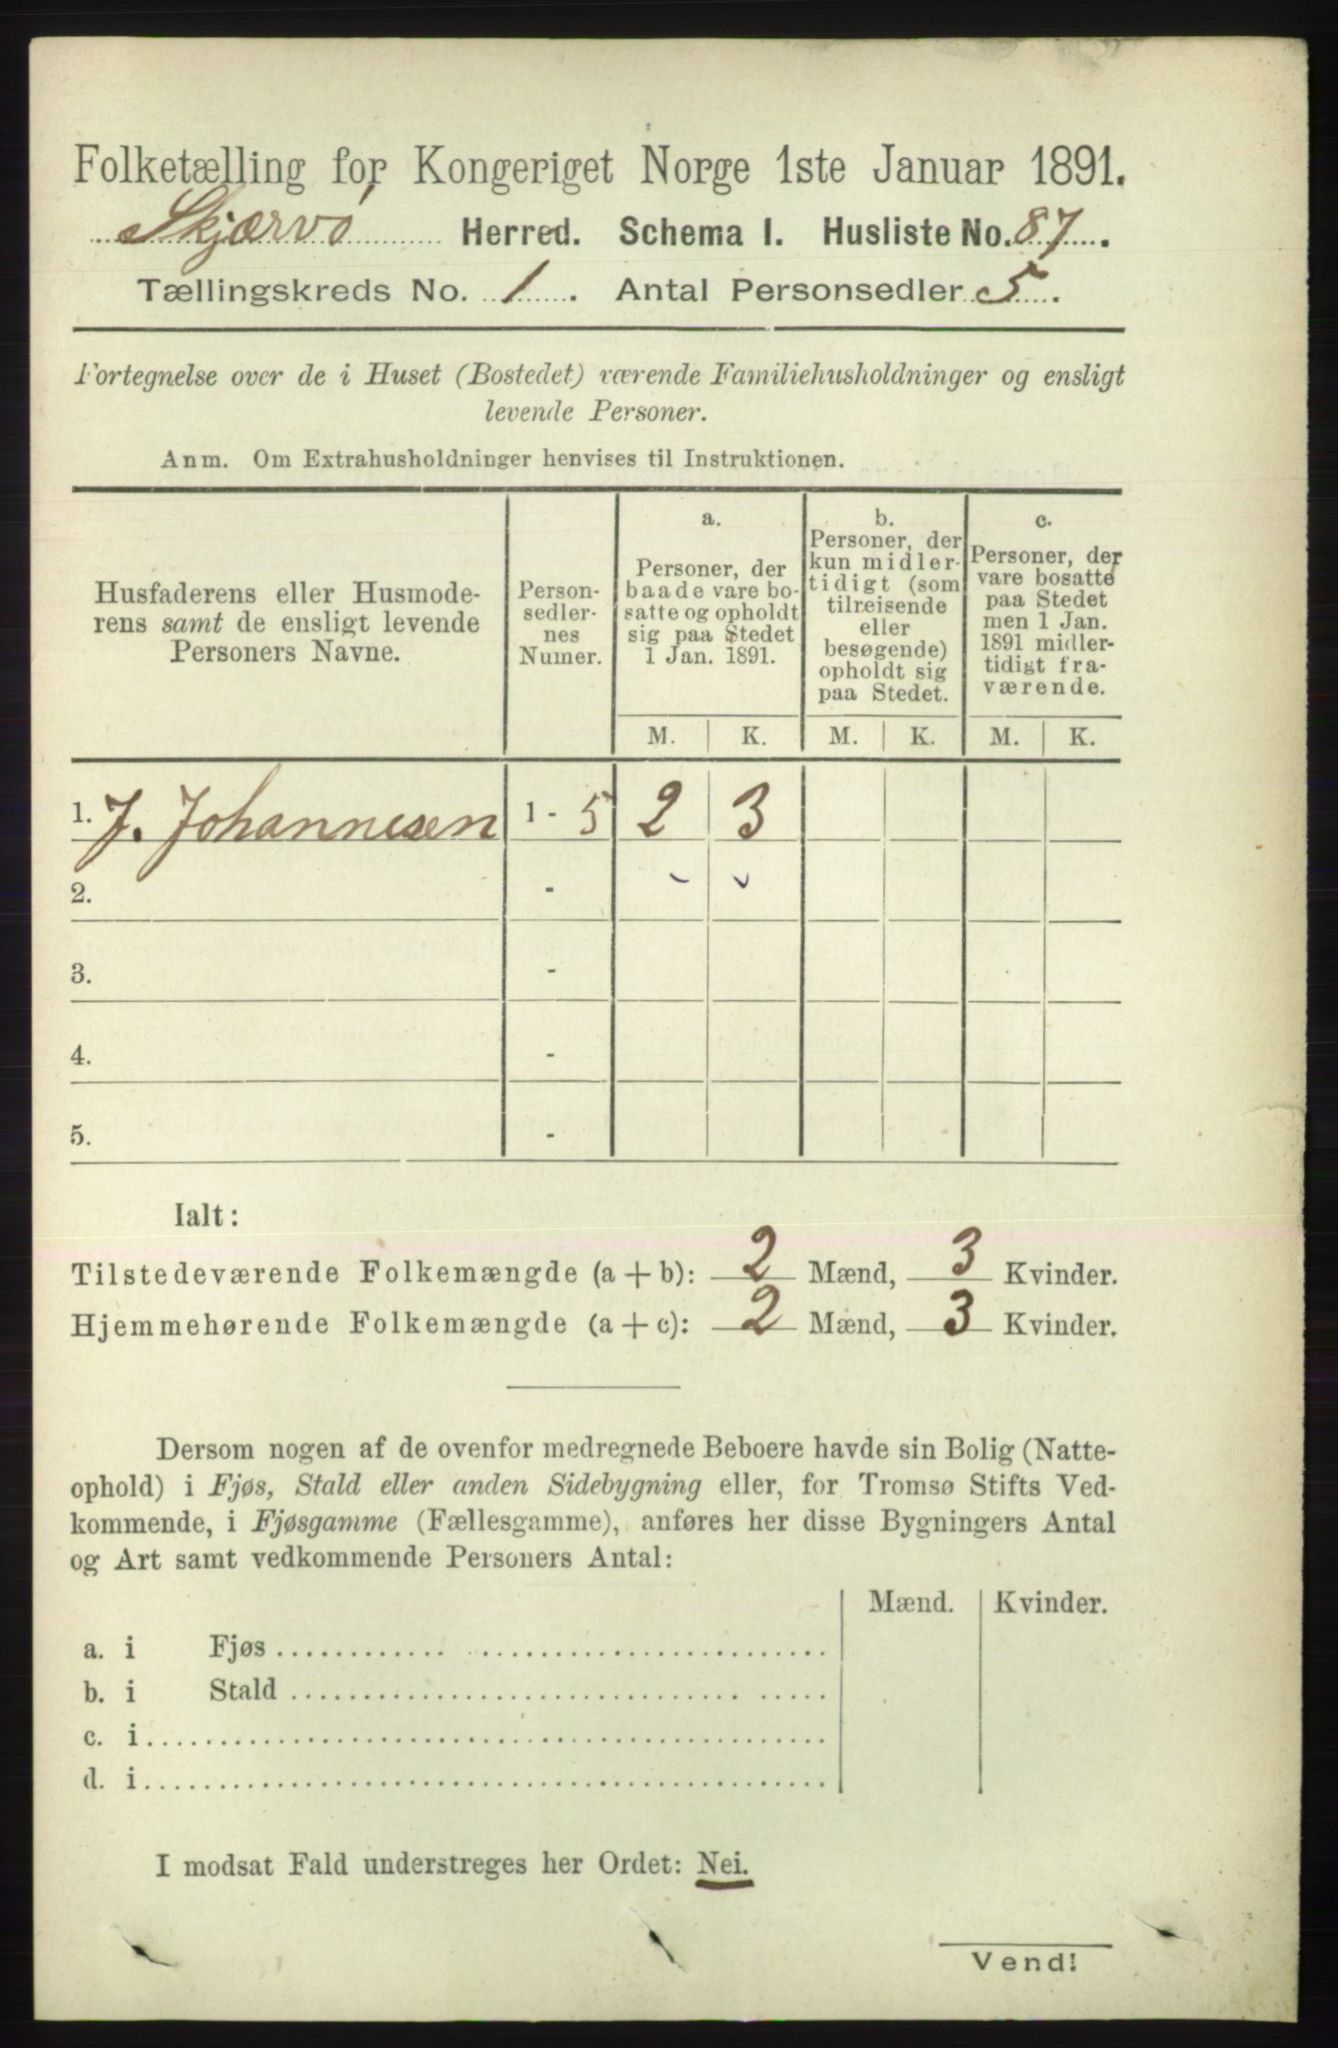 Folketælling for Kongeriget Norge 1ste Januar 1891.
Skjærvø Herred. Schema I. Husliste No. 87.
Tællingskreds No. 1. Antal Personsedler 5.
Fortegnelse over de i Huset (Bostedet) værende Familiehusholdninger og ensligt
levende Personer.
Anm. Om Extrahusholdninger henvises til Instruktionen.
Husfaderens eller Husmode-
rens samt de ensligt levende
Personers Navne.
Person-
sedler-
nes
Numer.
a.
Personer, der
baade vare bo-
satte og opholdt
sig paa Stedet
1 Jan. 1891.
b.
Personer, der
kun midler-
tidigt (som
tilreisende
eller
besøgende)
opholdt sig
paa Stedet.
c.
Personer, der
vare bosatte
paa Stedet
men 1 Jan.
1891 midler-
tidigt fra-
værende.
M. K. M. K. M. K.
1. J. Johannesen 1 - 5 2 3
2. -
3. -
4. -
5. -
Ialt:
Tilstedeværende Folkemængde (a + b): 2 Mænd, 3 Kvinder.
Hjemmehørende Folkemængde (a + c): 2 Mænd, 3 Kvinder.
Dersom nogen af de ovenfor medregnede Beboere havde sin Bolig (Natte-
ophold) i Fjøs, Stald eller anden Sidebygning eller, for Tromsø Stifts Ved-
kommende, i Fjøsgamme (Fællesgamme), anføres her disse Bygningers Antal
og Art samt vedkommende Personers Antal:
Mænd. Kvinder.
a. i Fjøs
b. i Stald
c. i
d. i
I modsat Fald understreges her Ordet: Nei.
Vend!